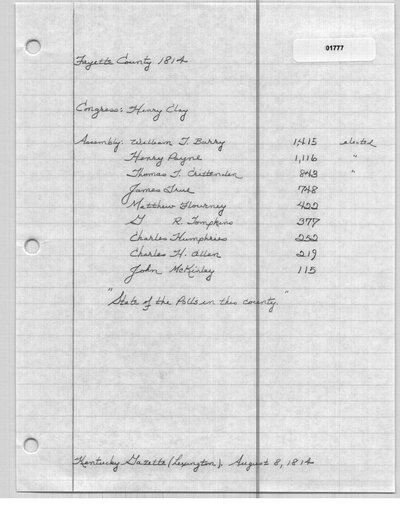 01777
Fayette County 1814
Congress: Henry Clay
Assembly: William T. Barry 1,415 elected
Henry Payne 1,116 "
Thomas T. Crittenden 843 "
James True 748
Matthew Flourney 422
G R. Tompkins 377
Charles Humphries 252
Charles H. Allen 219
John McKinley 115
"State of the Polls in this county."
Kentucky Gazette (Lexington), August 8, 1814